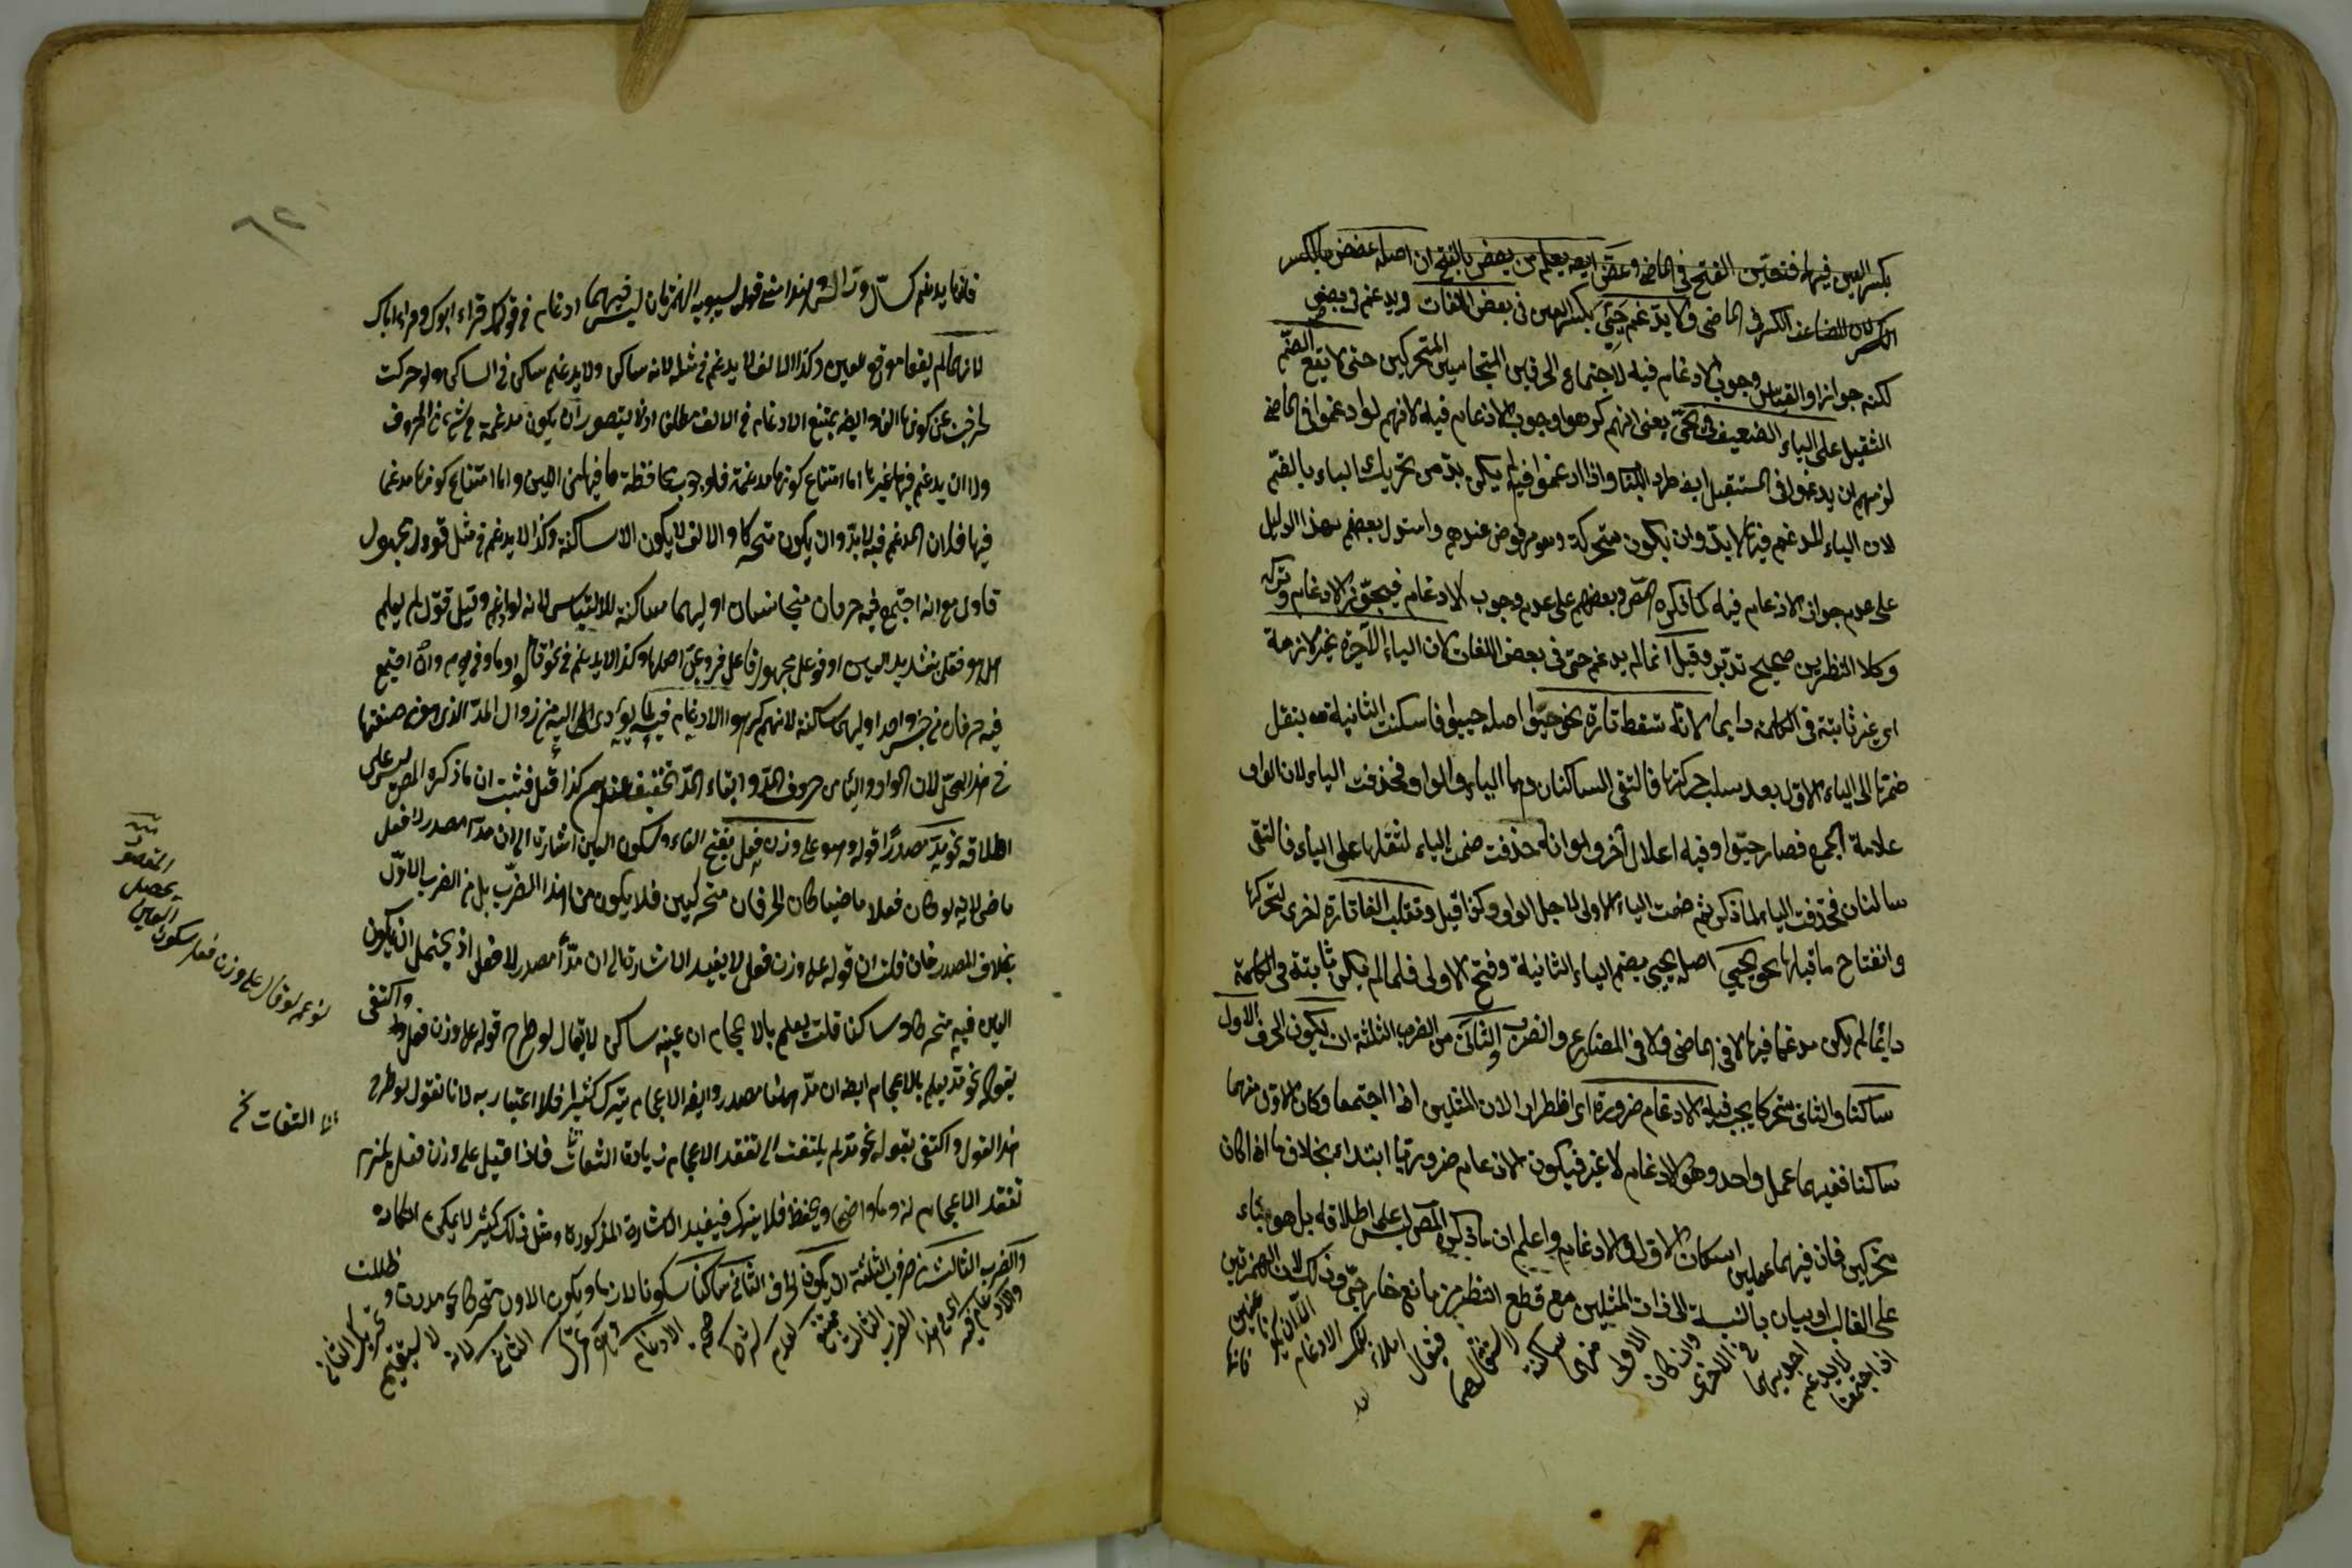 بكسر العين فيها فتعين الفتح في الماضي وعض ايضه يعلم من يعض بالفتح ان اصله عضض بالكسر
لكن المضاعف الكسر في الماضي ولا يدغم حيي بكسر العين في بعض اللغات ويدغم في بعض
لكنه جوازا والقياس وجوب الادغام فيه لاجتماع الحرفين المتجانسين المتحركين حتى لا يقع الضم
الثقيل على الياء الضعيف في يحي يعني انهم كرهوا وجوب الادغام فيه لانهم لو ادغموا في الماضي
لزمهم ان يدغموا في المستقبل ايضه طردا للباب واذا ادغموا فيه لم يكن بد من تحريك الياء بالضم
لان الياء المدغم فيها لا بد وان يكون متحركة وهو مرفوض عندهم واستدل بعضهم بهذا الدليل
على عدم جواز الادغام فيه كما ذكره المص وبعضهم على عدم وجوب الادغام فيجوز الادغام وتركه
وكلا النظرين صحيح تدبر وقيل انما لم يدغم حيي في بعض اللغات لان الياء الاخيرة غير لازمة
اي غير ثابتة في الكلمة دايما لانه تسقط تارة نحو حيوا اصله حييوا فاسكنت الثانية بنقل
ضمتها الى الياء الاول بعد سلب حركتها فالتقى الساكنان وهما الياء والواو فحذفت الياء لان الواو
علامة الجمع فصار حيوا وفيه اعلال آخر وهو انه حذفت ضمة الياء لثقلها على الياء فالتقى
ساكنان فحذفت الياء لما ذكر ثم ضمت الياء الاولى لاجل الواو وكذا قيل وتقلب الفا تارة اخرى لتحركها
وانفتاح ما قبلها نحو يحيي اصله يحيي بضم الياء الثانية وفتح الاولى فلما لم يكن ثابتة في الكلمة
دائما لم يكن مدغما فيها لا في الماضي ولا في المضارع والضرب الثاني من الضرب الثلثة ان يكون الحرف الاول
ساكنا والثاني متحركا يجب فيه الادغام ضرورة اي اضطرارا لان المثلين اذا اجتمعا وكان الاول منهما
ساكنا ففيهما عمل واحد وهو الادغام لا غير فيكون الادغام ضروريا ابتداء بخلاف ما اذا كان
متحركين فان فيهما عملين اسكان الاول والادغام واعلم ان ما ذكره المص ليس على اطلاقه بل هو بناء
على الغالب او بيان بالنسبة الى ذات المثلين مع قطع النظر من مانع خارجي وذلك لان الهمزتين
اذا اجتمعتا لا يدغم احديهما في الاخرى وان كان الاول منهما ساكنة فيقال املاء بفك الادغام الا ان يكونا عينين
فانهما يدغم كسأل وترأس وهذا معنى قول سيبويه الهمزتان ليس فيهما ادغام في قولك قراء ابوك واقراء اباك
لانهما لم يقعا موقع العين وكذا الالف لا يدغم في مثله لانه ساكن ولا يدغم ساكن في الساكن ولو حركت
لخرجت عن كونها الفا وايضه يمتنع الادغام في الالف مطلقا اذ لا يتصور ان يكون مدغمة في شيء من الحروف
ولا ان يدغم فيها غيرها اما امتناع كونها مدغمة فلوجوب محافظة ما فيها من اللين واما امتناع كونها مدغما
فيها فلان المدغم فيه لا بد وان يكون متحركا والالف لا يكون الا ساكنة وكذا لا يدغم في مثل قوول مجهول
قاول مع انه اجتمع فيه حرفان متجانسان اوليهما ساكنة للالتباس لانه لو ادغم وقيل قول لم يعلم
اهو فعل بتشديد العين او فوعل مجهول فاعل فروعي اصلها وكذا لا يدغم في نحو قالوا وما وفي يوم وان اجتمع
فيه حرفان من جنس واحد اوليهما ساكنة لانهم كرهوا الادغام فيه لما يؤدى اليه من زوال المد الذي هو من صفتها
في هذا المحل لان الواو والياء من حروف المد وابقاء المد تخفيف عندهم كذا قيل فثبت ان ما ذكره المص ليس على
اطلاقه نحو مد مصدرا قوله وهو على وزن فعل بفتح الفاء وسكون العين اشارة الى ان مدا مصدر لا فعل
ماضي لانه لو كان فعلا ماضيا كان الحرفان متحركين فلا يكون من هذا الضرب بل من الضرب الاول
بخلاف المصدر فان قلت ان قوله على وزن فعل لا يفيد الاشارة الى ان مدا مصدر لا فعل اذ يحتمل ان يكون
العين فيه متحركا وساكنا قلت يعلم بالاعجام ان عينه ساكن لا يقال لو طرح قوله على وزن فعل واكتفى
بقوله نحو مد يعلم بالاعجام ايضه ان مد ههنا مصدر وايضه الاعجام يترك كثيرا فلا اعتبار به لانا نقول لو طرح
هذا القول واكتفى بقوله نحو مد لم يلتفت الى تفقد الاعجام زيادة التفات فاذا قيل على وزن فعل يلزم
تفقد الاعجام لزوما واضحا ويحفظ فلا يترك فيفيد الاشارة المذكورة ومثل ذلك كثير لا يمكن انكاره
والضرب الثالث من ضروب الثلثة ان يكون الحرف الثاني ساكنا سكونا لازما ويكون الاول متحركا نحو مددت وظللت
والادغام فيه اي في هذا الضرب الثالث ممتنع لعدم شرط صحة الادغام وهو تحرك الثاني لانه لا يستقيم تحريك الثاني
التفات نخ